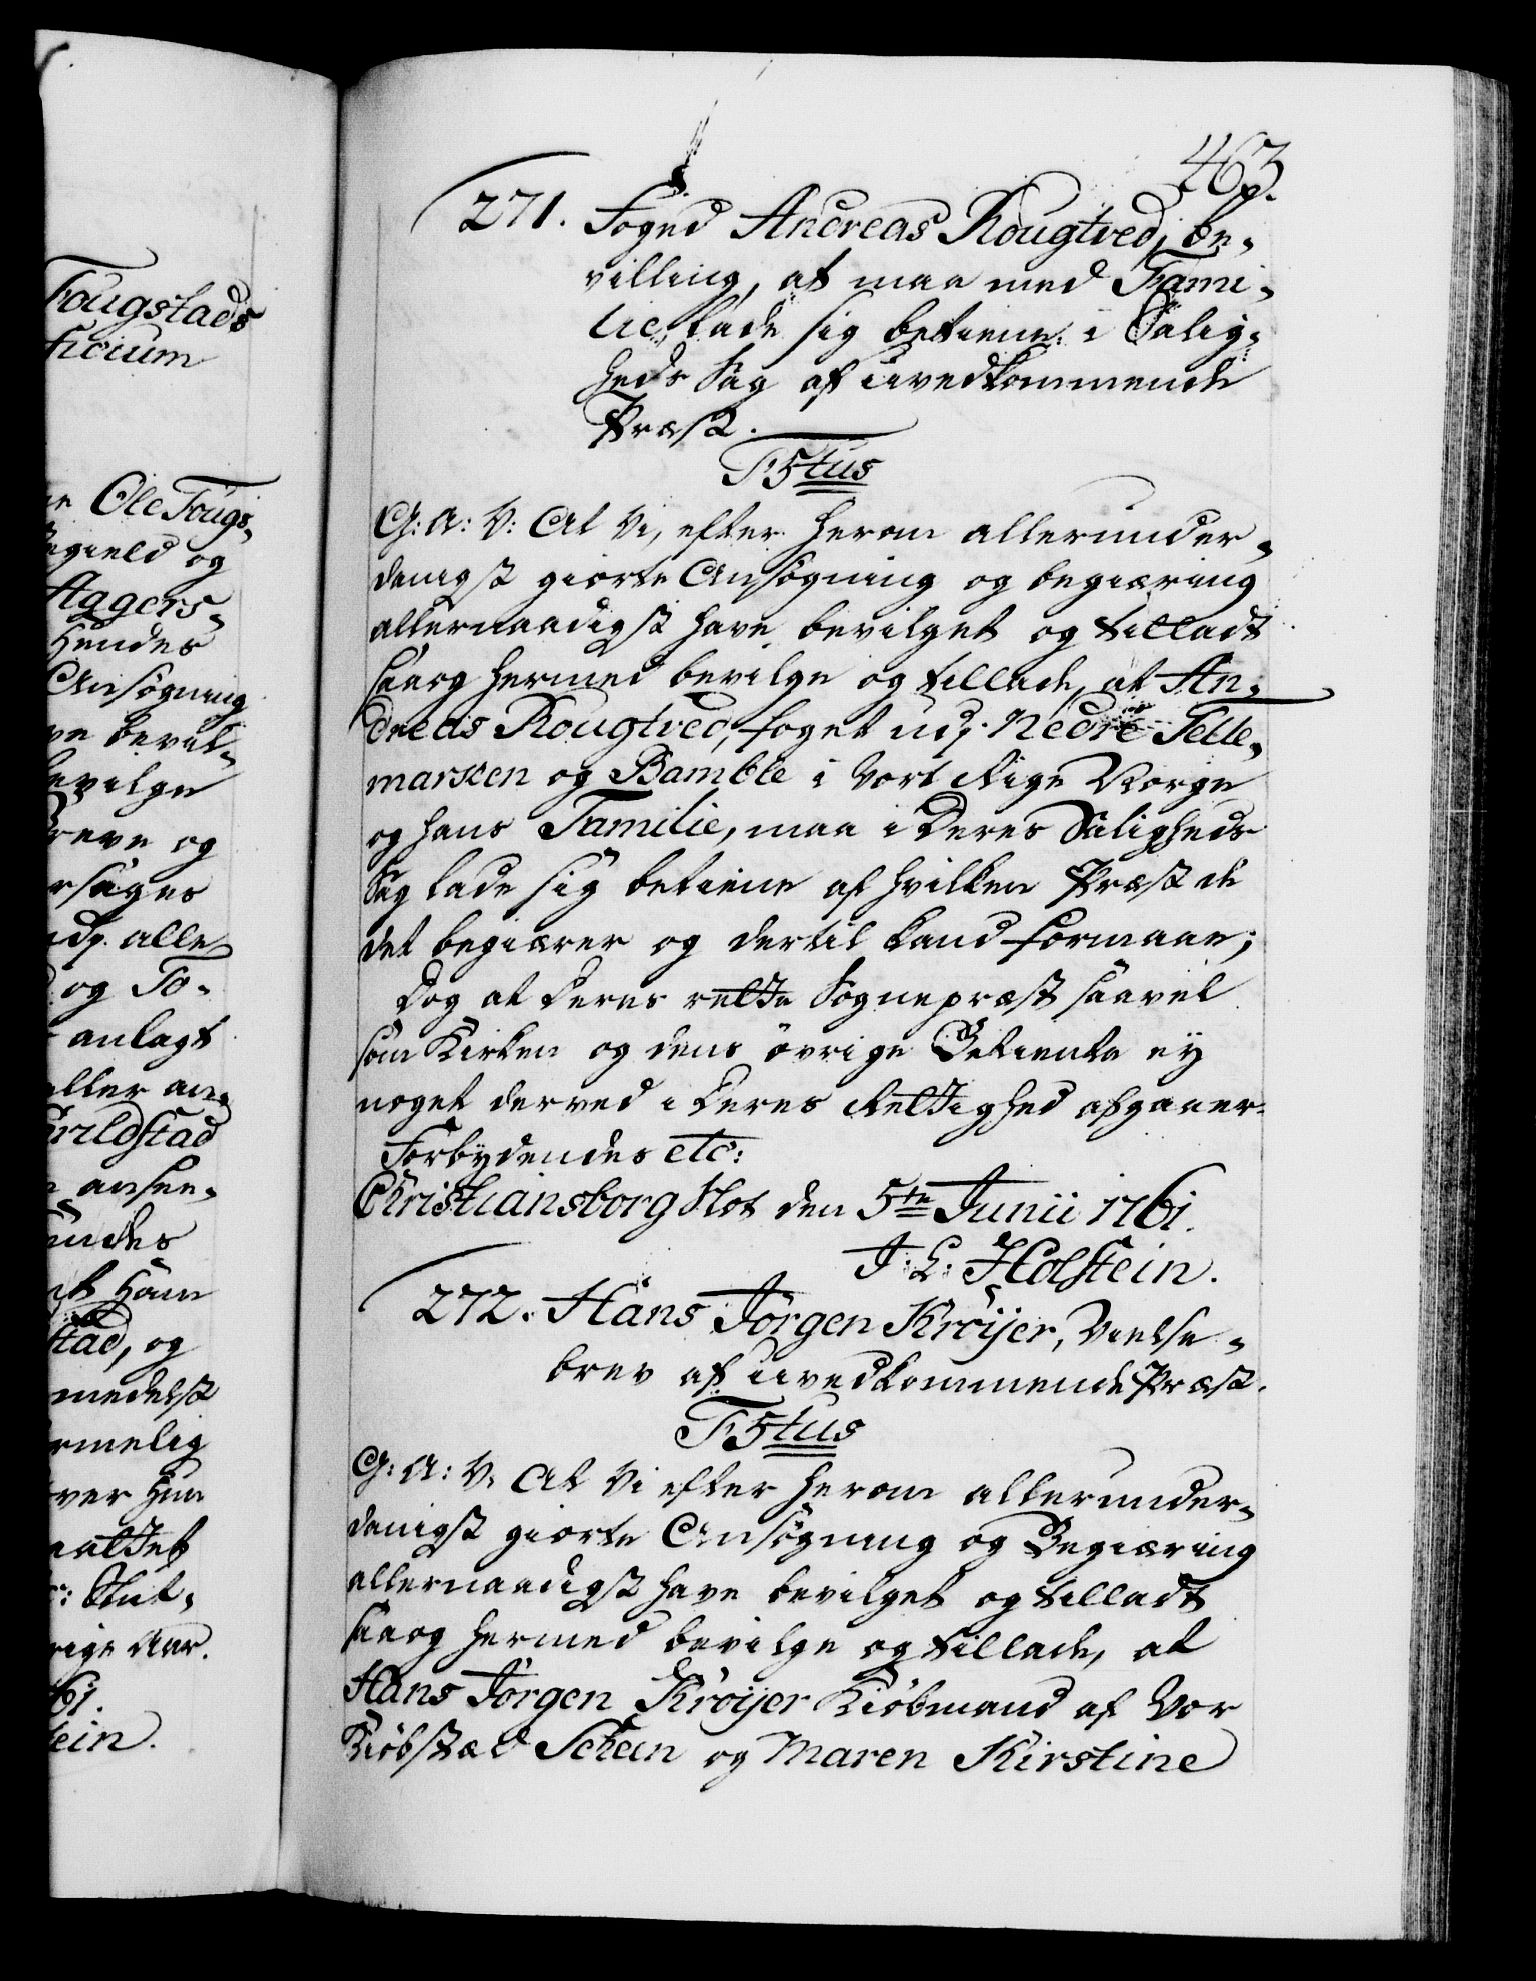 463.
271. Foged Andreas Rougtved, be-
villing, at maa med Fami-
lie, lade sig betiene i Salig-
heds Sag af uvedkommende
Præst.
F5tus
G: A: V: At Vi, efter herom allerunder-
danigst giorte Ansøgning og begiæring
allernaadigst have bevilget og tilladt
saa og hermed bevilge og tillade, at An-
dreas Rougtved, foget udj Nedre Telle-
marken og Bamble i Vort Rige Norge
og hans Familie, maa i Deres Saligheds
Sag lade sig betiene af hvilken Præst de
det begiærer og dertil kand formaae;
Dog at Deres rette Sognepræst saavel
som Kirken og dens øvrige Betiente ey
noget derved i Deres Rettighed afgaaer.
Forbydendes etc:
Christiansborg Slot den 5te Junii 1761.
J: L: Holstein.
272. Hans Jörgen Kröijer, Vielse-
brev af uvedkommende Præst.
F5tus
G: A: V: At Vi efter herom allerunder-
danigst giorte Ansøgning og Begiæring
allernaadigst have bevilget og tilladt
saa og hermed bevilge og tillade, at
Hans Jörgen Kröijer Kiøbmand af Vor
Kiøbstæd Scheen og Maren Kirstine
Fougstads
ficium
Ole Fougs-
gield og
Aggers-
Hendes
Ansøgning
bevil-
bevilge
og
alle
og To-
anlagt
eller an-
ansee-
Ham
stad, og
medelst
over
Aar.